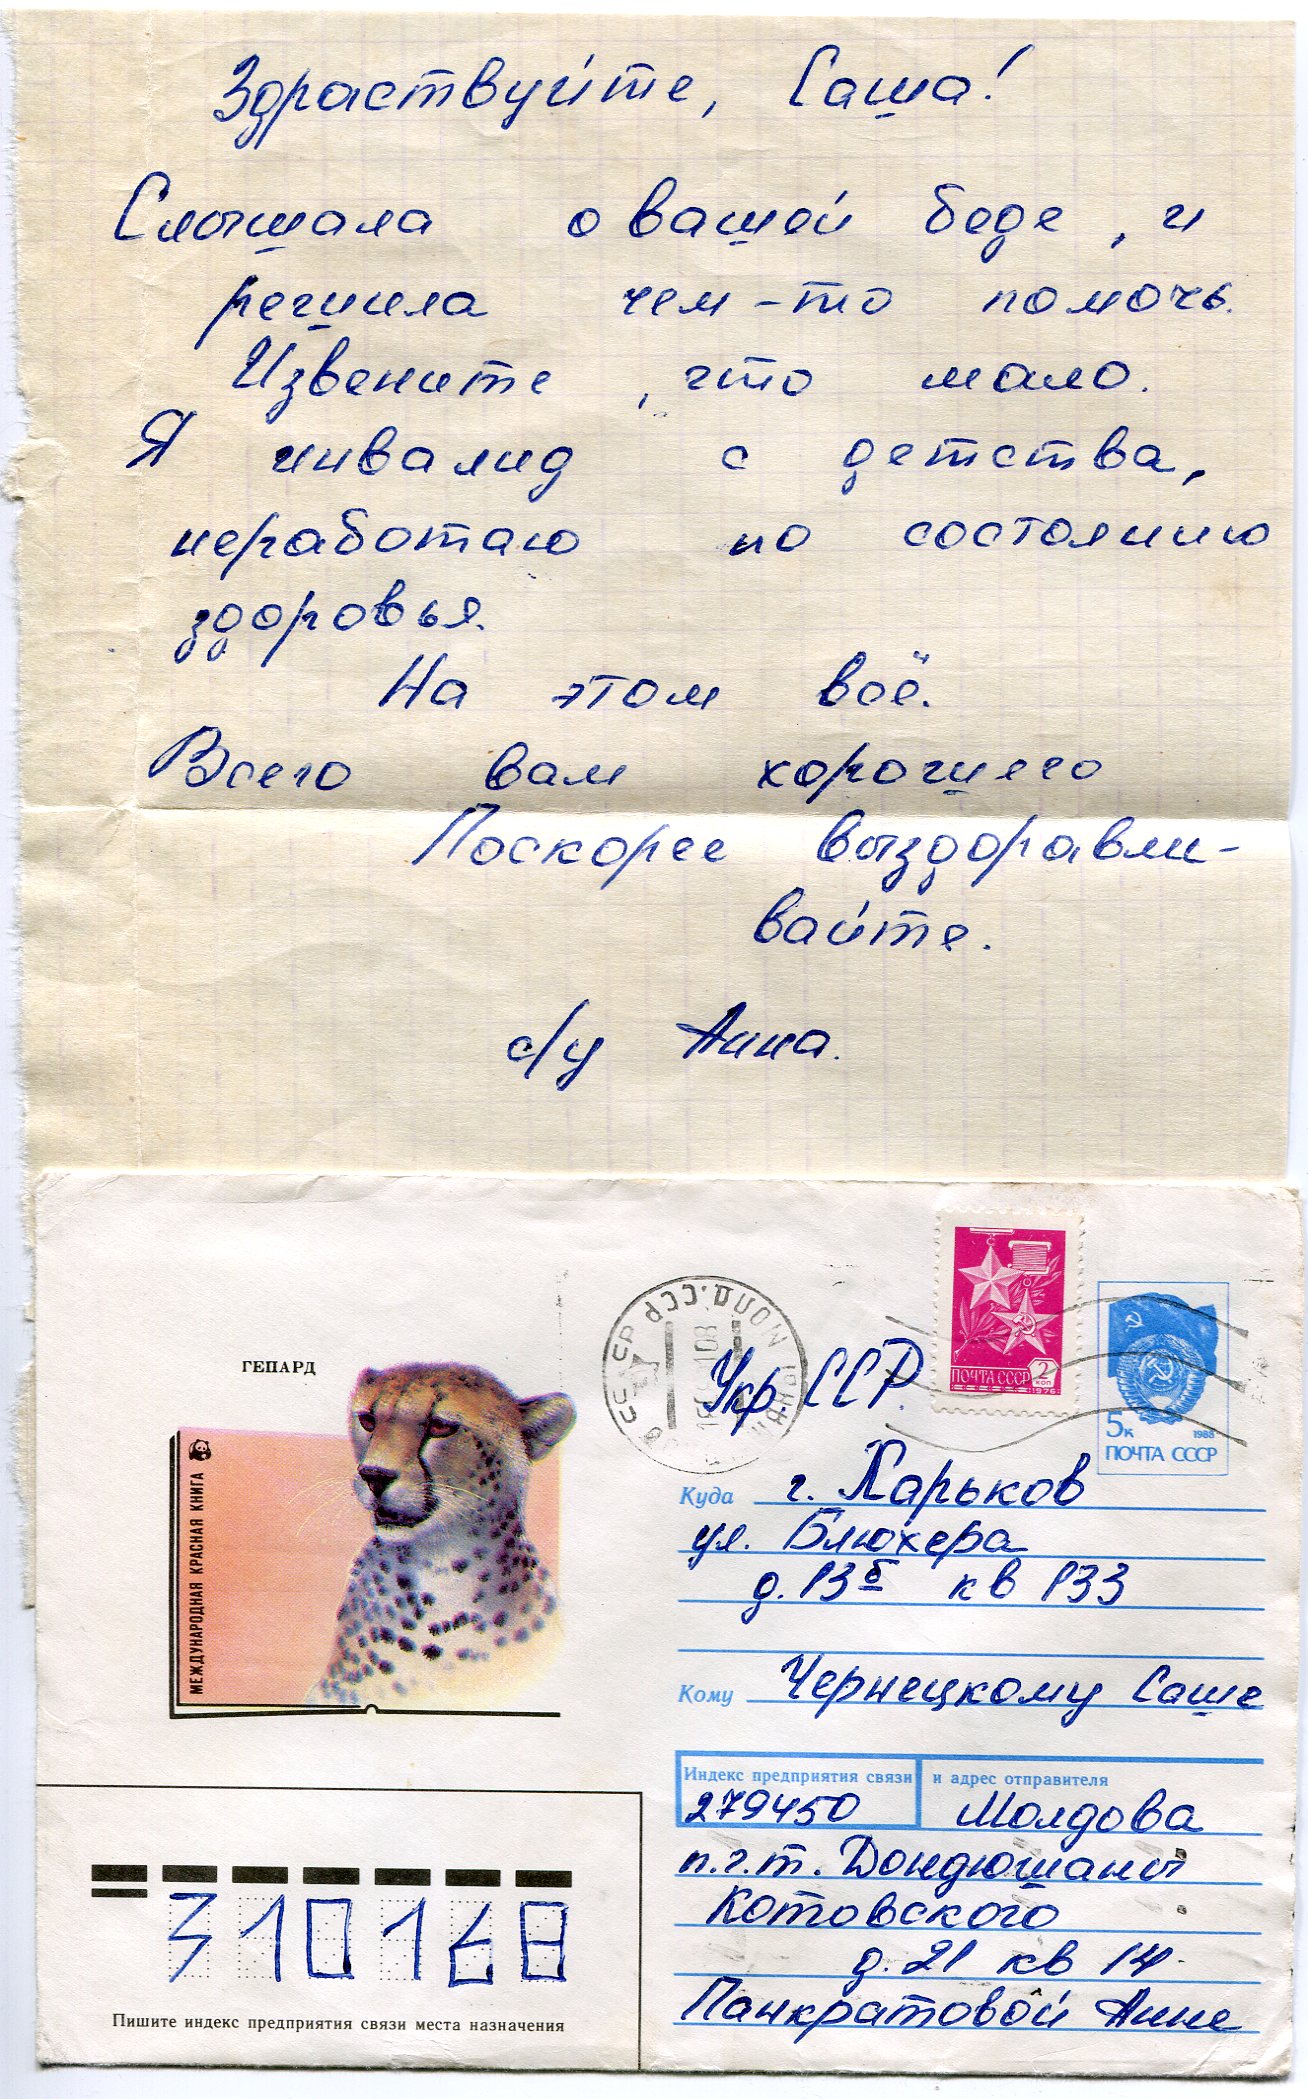 Здраствуйте, Саша!
Слышала о вашей беде, и
решила чем-то помочь.
Извените, что мало.
Я инвалид с детства,
неработаю по состоянию
здоровья.
На этом всё.
Всего вам хорошего
Поскорее выздоравли-
вайте.
с/у Анна.
ГЕПАРД
МЕЖДУНАРОДНАЯ КРАСНАЯ КНИГА
ПОЧТА СССР 2 КОП
1976
5к 1988
ПОЧТА СССР
МОЛД. ССР
Укр. ССР.
Куда г. Харьков
ул. Блюхера
д. 13б кв 133
Кому Чернецкому Саше
Индекс предприятия связи и адрес отправителя
279450 Молдова
п.г.т. Дондюшаны
Котовского
д. 21 кв 14.
Панкратовой Анне
310168
Пишите индекс предприятия связи места назначения